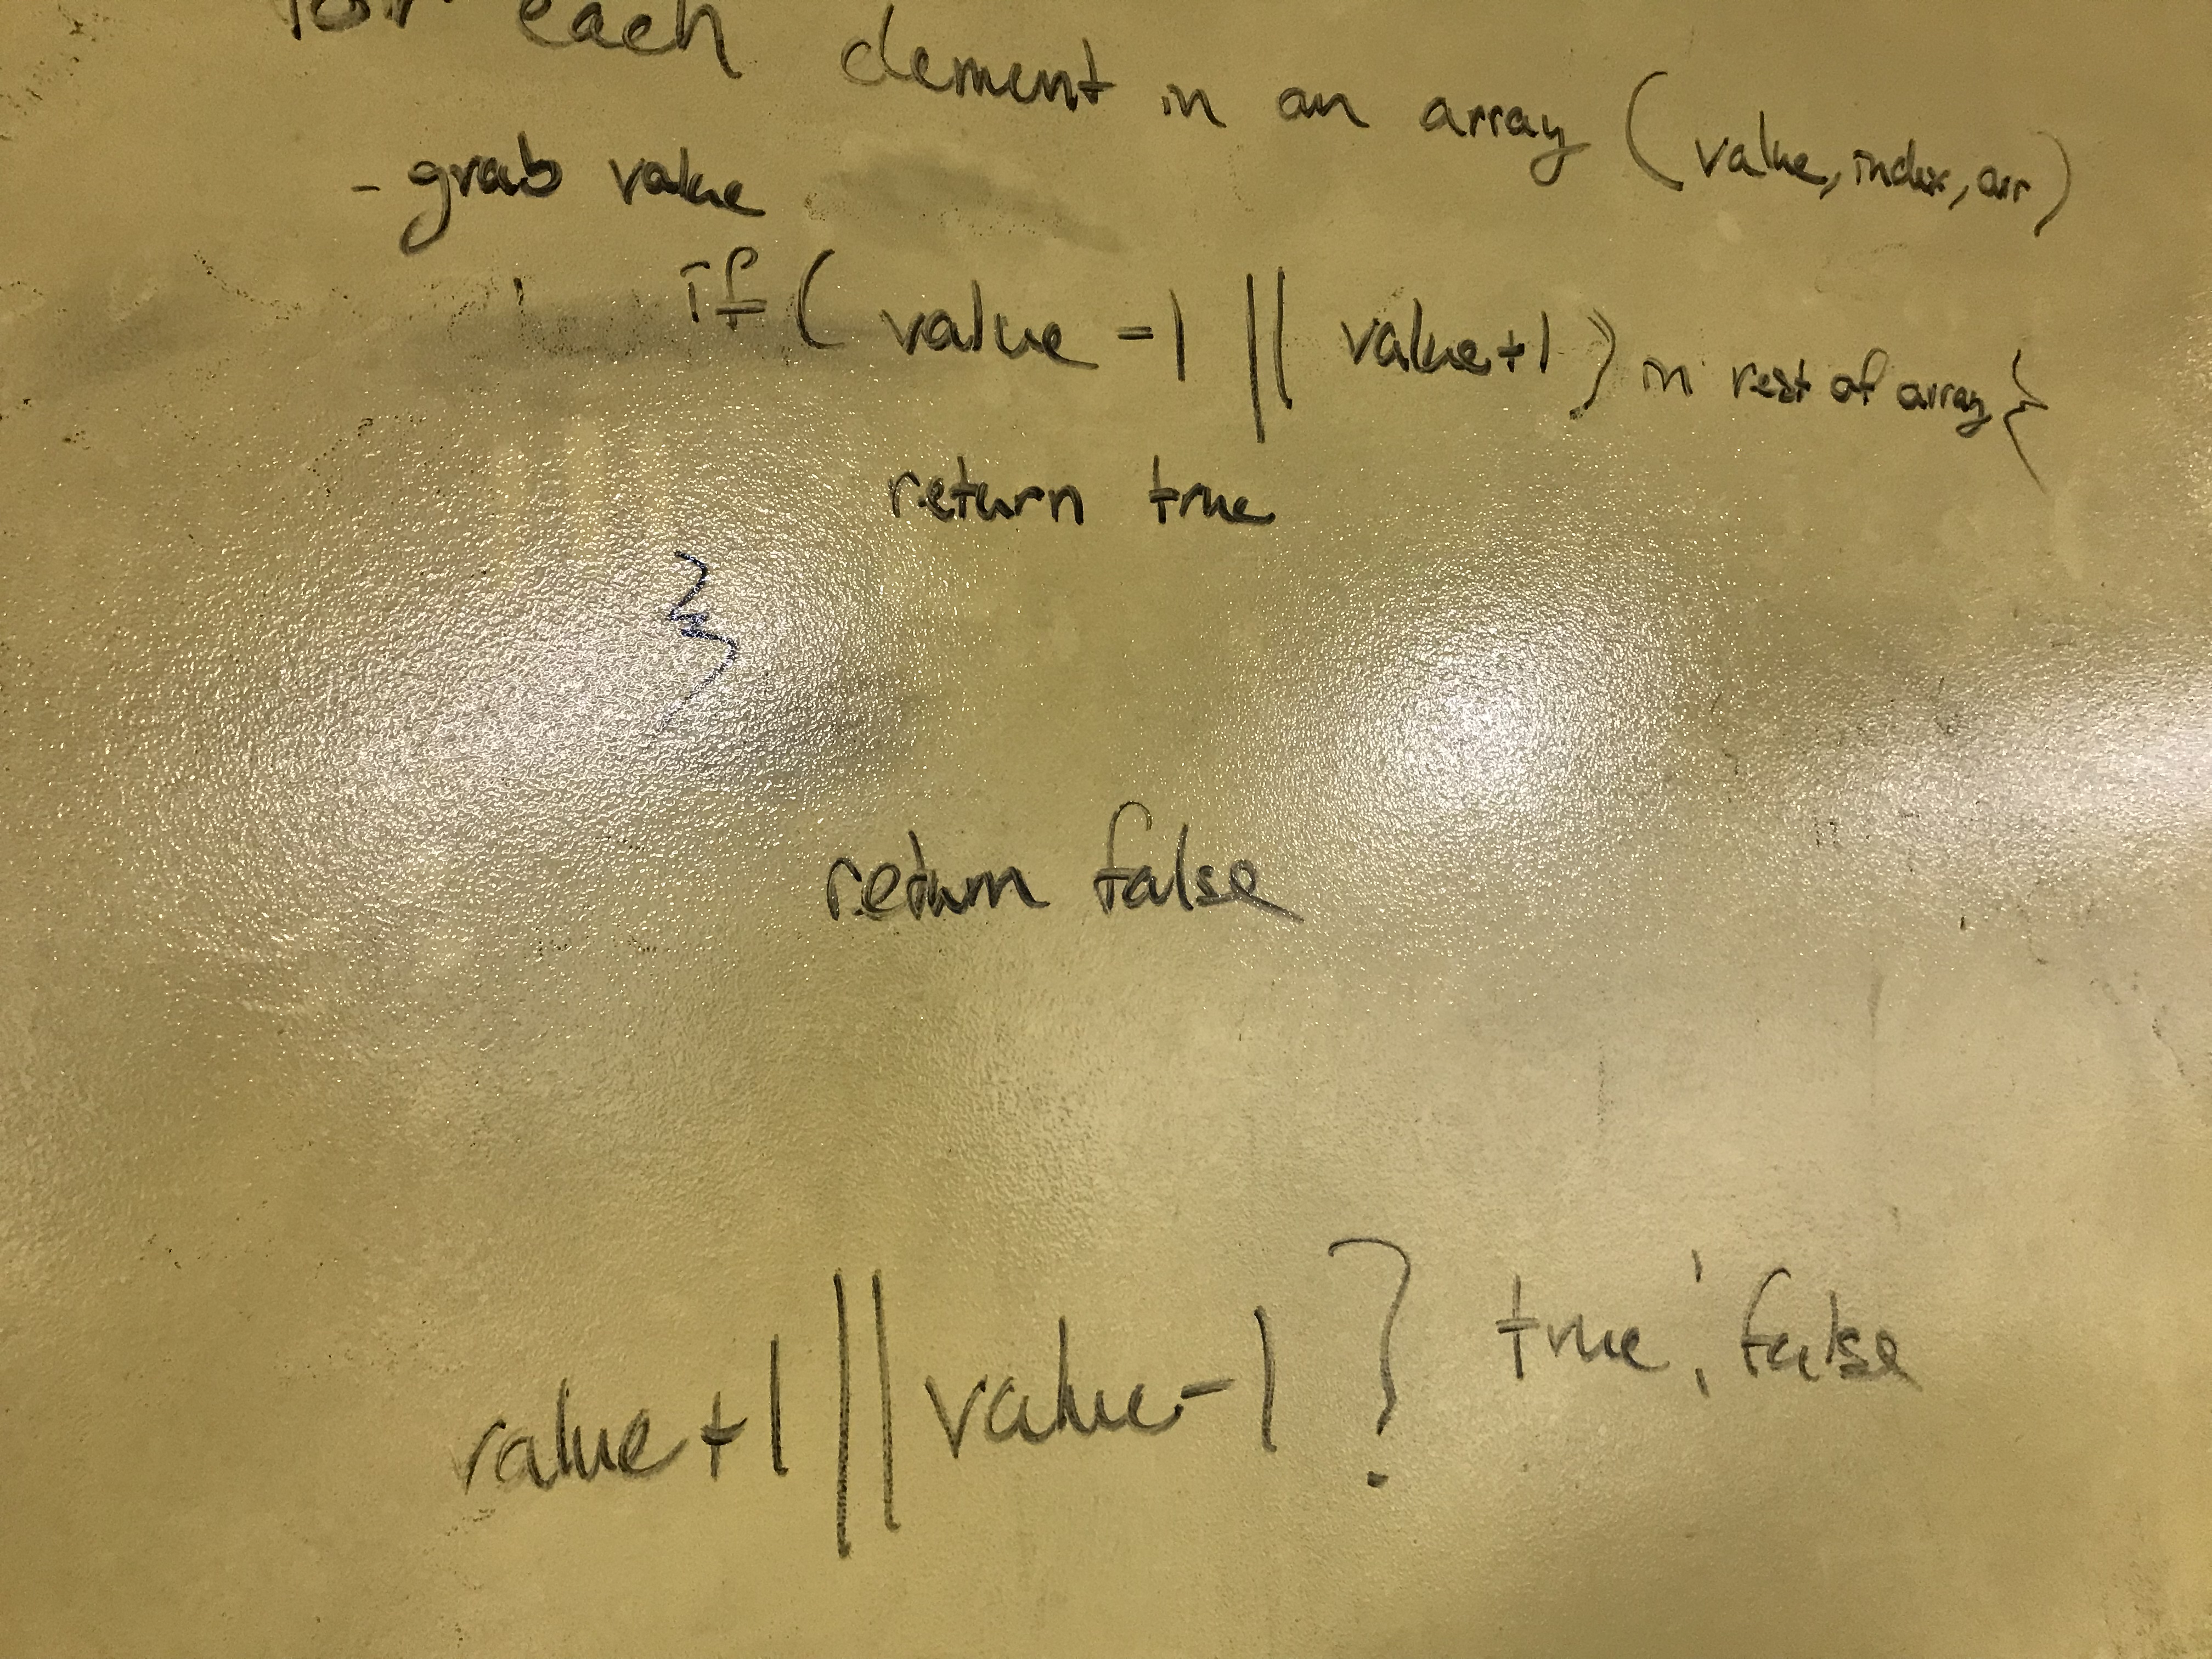 for each element in an array (value, index, arr)
- grab value
if ( value -1 || value+1 ) in rest of array {
return true
}
return false
value+1 || value-1 ? true : false